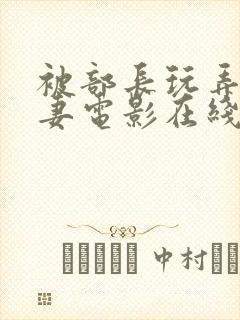 被部長玩弄
妻電影在綫
中村